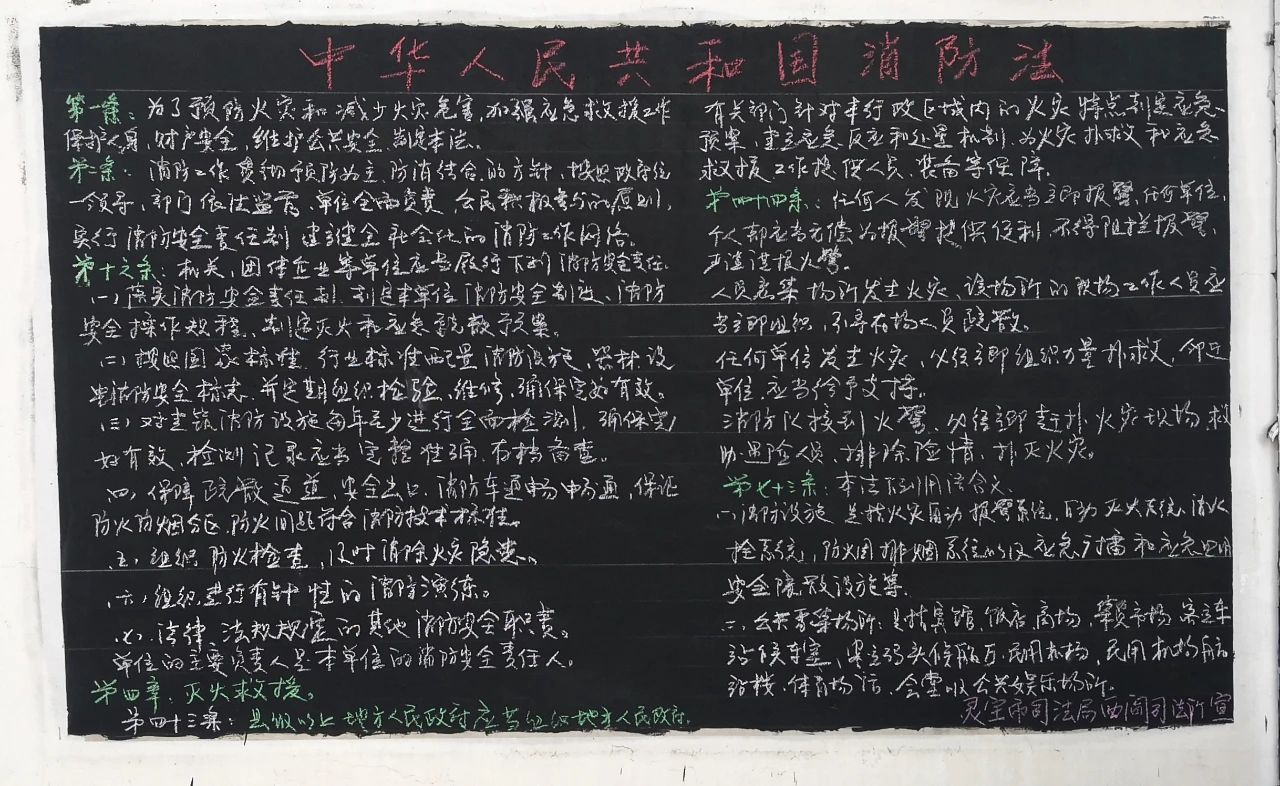 中华人民共和国消防法
第一条：为了预防火灾和减少火灾危害，加强应急救援工作
保护人身，财产安全，维护公共安全，制定本法。
第二条：消防工作贯彻预防为主，防消结合的方针，按照政府统
一领导，部门依法监管，单位全面负责，公民积极参与的原则，
实行消防安全责任制，建立健全社会化的消防工作网络。
第十六条：机关，团体企业等单位应当履行下列消防安全责任
（一）落实消防安全责任制，制定本单位消防安全制度、消防
安全操作规程，制定灭火和应急疏散预案。
（二）按照国家标准，行业标准配置消防设施、器材，设
置消防安全标志，并定期组织检验、维修，确保完好有效。
（三）对建筑消防设施每年至少进行全面检测，确保完
好有效，检测记录应当完整准确，存档备查。
（四）保障疏散通道，安全出口，消防车通畅通，保证
防火防烟分区，防火间距符合消防技术标准。
（五）组织防火检查，及时消除火灾隐患。
（六）组织进行有针性的消防演练。
（七）法律，法规规定的其他消防安全职责。
单位的主要负责人是本单位的消防安全责任人。
第四章：灭火救援。
第四十三条：县级以上地方人民政府应当组织地方人民政府。
有关部门针对本行政区域内的火灾特点制定应急
预案，建立应急反应和处置机制，为火灾扑救和应急
救援工作提供人员，装备等保障。
第四十四条：任何人发现火灾应当立即报警，任何单位，
个人都应当无偿为报警提供便利，不得阻拦报警，
严禁谎报火警。
人员密集场所发生火灾，该场所的现场工作人员应
当立即组织，引导在场人员疏散。
任何单位发生火灾，必须立即组织力量扑救，邻近
单位应当给予支持。
消防队接到火警，必须立即赶扑火灾现场，救
助遇险人员，排除险情，扑灭火灾。
第七十三条：本法下列用语含义
一、消防设施，是指火灾自动报警系统，自动灭火系统，消火
栓系统，防烟排烟系统以及应急广播和应急照明
安全疏散设施等
二、公共聚集场所，是指宾馆，饭店，商场，集贸市场，客运车
站候车室，客运码头候船厅，民用机场，民用机场航
站楼，体育场馆，会堂以公共娱乐场所。
灵宝市司法局西阎司法所宣